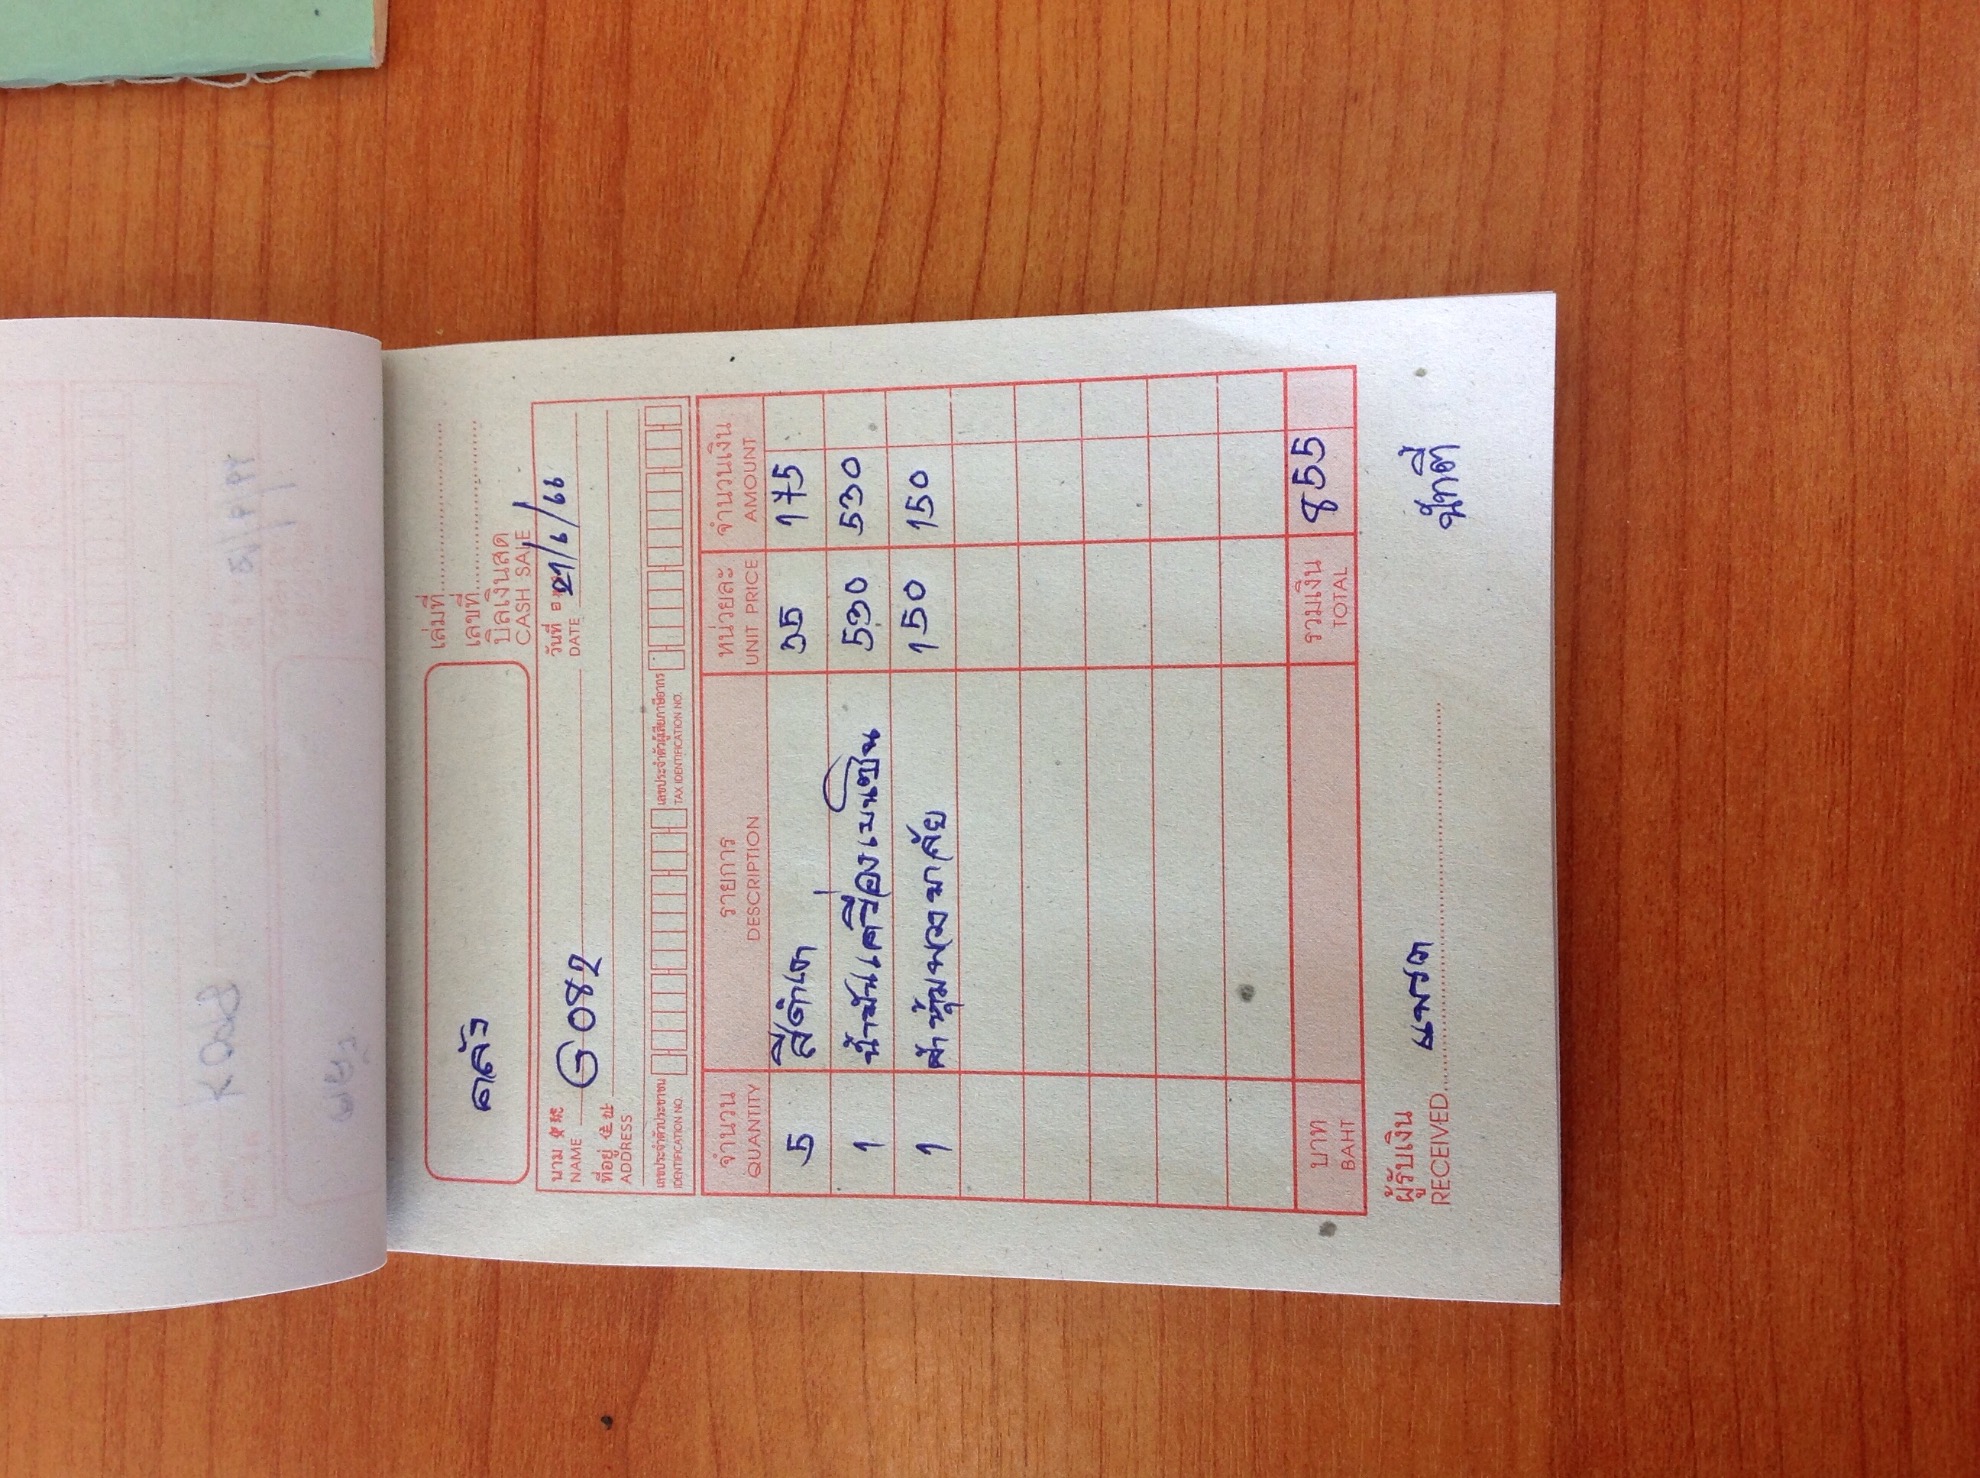 เล่มที่
เลขที่
คลัง
บิลเงินสด
CASH SALE
นาม
NAME G082
วันที่
DATE 21/6/66
ที่อยู่
ADDRESS
เลขประจำตัวประชาชน
IDENTIFICATION NO.
เลขประจำตัวผู้เสียภาษีอากร
TAX IDENTIFICATION NO.
จำนวน รายการ หน่วยละ จำนวนเงิน
QUANTITY DESCRIPTION UNIT PRICE AMOUNT
5 สีดำเงา 35 175
1 น้ำมันเครื่องเบนซิน 530 530
1 ผ้าหุ้มพวงมาลัย 150 150
บาท รวมเงิน 855
BAHT TOTAL
ผู้รับเงิน
RECEIVED